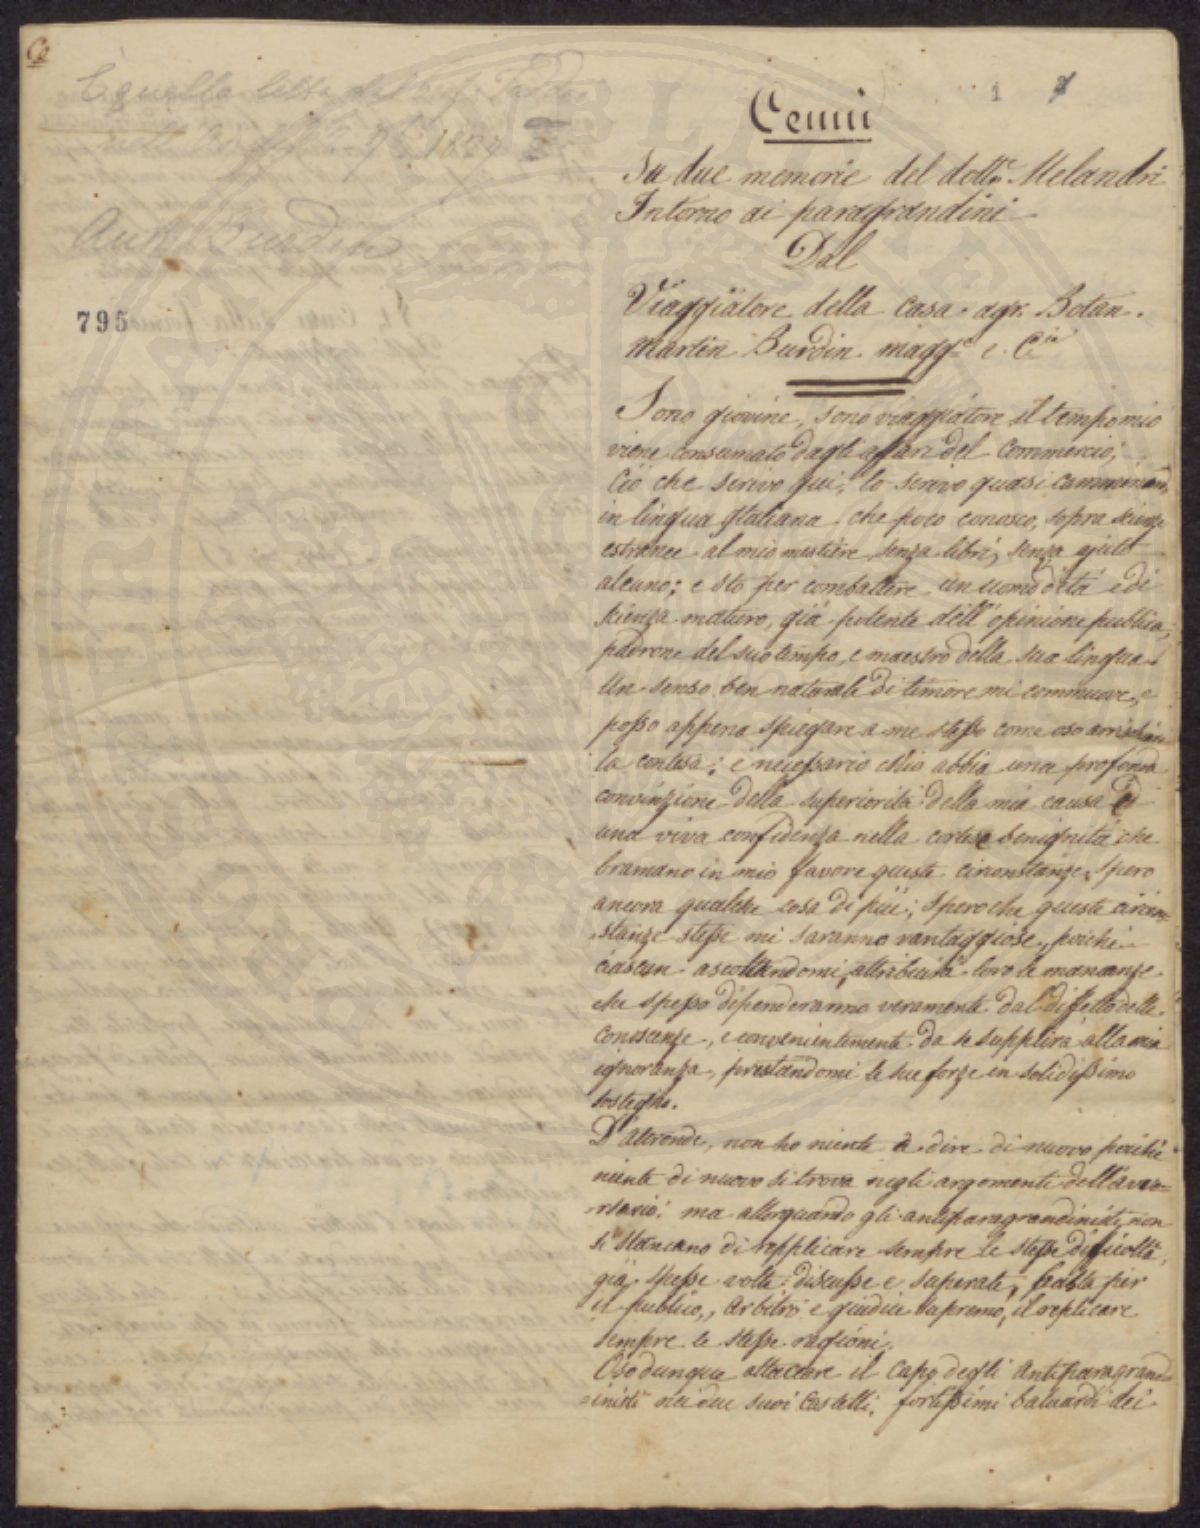 È quella letta dal
1824
Burdin
795
1
Cenni
Su due memorie del dott.re Melandri
Intorno ai paragrandini
Dal
Viaggiatore della casa agr. Botan.
Martin Burdin magg.e e C.ia
Sono giovine, sono viaggiatore il tempo mio
viene consumato dagli affari del Commercio;
Ciò che scrivo qui, lo scrivo quasi
in lingua Italiana che poco conosco, sopra scienze
estranee al mio mestiere, senza libri, senza ajuto
alcuno; e sto per combattere un uomo d'età e di
scienza maturo, già potente dell'opinione publica,
padrone del suo tempo, e maestro della sua lingua.
Un senso ben naturale di timore mi commuove, e
posso appena spiegare a me stesso come oso
la contesa; è necessario ch'io abbia una profonda
convinzione della superiorità della mia causa ed
una viva confidenza nella cortese benignità che
bramano in mio favore queste circonstanze, spero
ancora qualche cosa di più; spero che queste circon-
stanze stesse mi saranno vantaggiose, poiché
ciascun ascoltandomi, attribuirà loro le mancanze
che spesso dipenderanno veramente dal diffetto delle
conoscenze, e convenientemente da se supplirà alla mia
ignoranza, prestandomi le sue forze in solidissimo
sostegno.
D'altronde, non ho niente a dire di nuovo poiché
niente di nuovo si trova negli argomenti dell'avver=
=sario: ma allorquando gli antiparagrandinisti, non
si stancano di repplicare sempre le stesse difficoltà,
già spesse volte discusse e superate, basta per
il publico, arbitro e giudice supremo, il replicare
sempre le stesse ragioni.
Oso dunque attaccare il Capo degli Antiparagrand=
=inisti nei due suoi Castelli, fortissimi baluardi dei